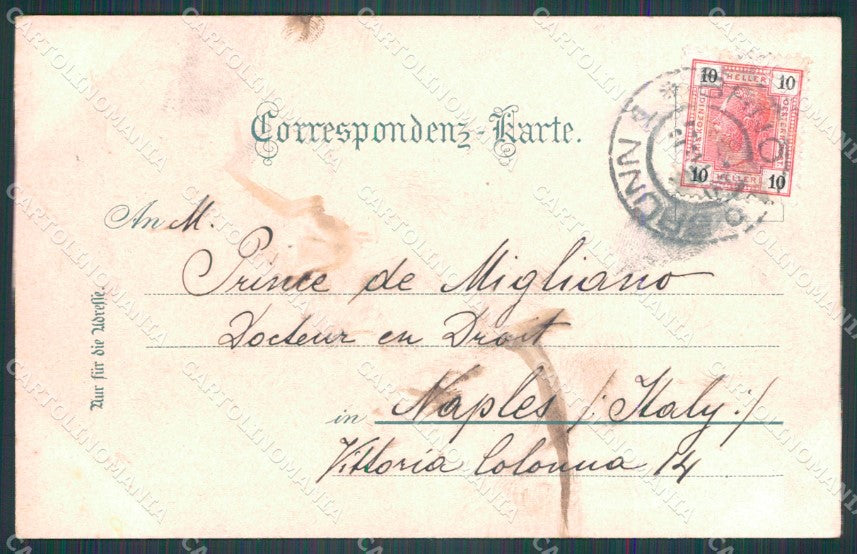 Correspondenz-Karte.
10 HELLER 10
10 HELLER 10
BRÜNN
An M.
Prince de Migliano
Docteur en Droit
in Naples /: Italy :/
Vittoria Colonna 14
Nur für die Adresse.
CARTOLINOMANIA